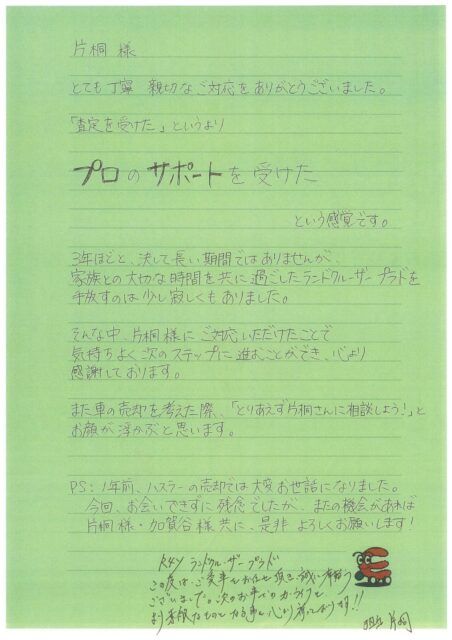 片桐 様
とても丁寧 親切なご対応をありがとうございました。
「査定を受けた」というより
プロのサポートを受けた
という感覚です。
3年ほどと、決して長い期間ではありませんが、
家族との大切な時間を共に過ごしたランドクルーザープラドを
手放すのは少し寂しくもありました。
そんな中、片桐様にご対応いただけたことで
気持ちよく次のステップに進むことができ、心より
感謝しております。
また車の売却を考えた際、「とりあえず片桐さんに相談しよう!」と
お顔が浮かぶと思います。
PS: 1年前、ハスラーの売却では大変お世話になりました。
今回、お会いできずに残念でしたが、またの機会があれば
片桐様・加賀谷様共に、是非よろしくお願いします!
ランドクルーザープラド
この度は、ご愛車をお任せ頂き、誠に有難う
ございました。次のお車でのカーライフも
より素敵なものとなる事を心より
片桐